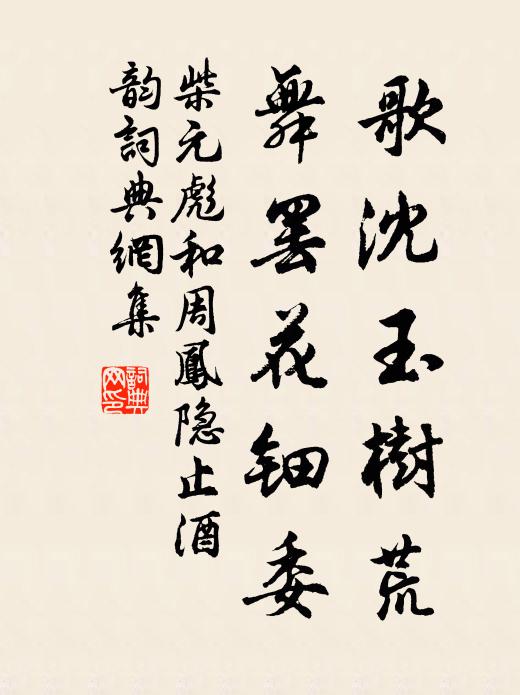 歌沈玉樹荒
舞罢花钿委
柴元彪和周鳳隐止酒
韵詞典網集
詞典网印